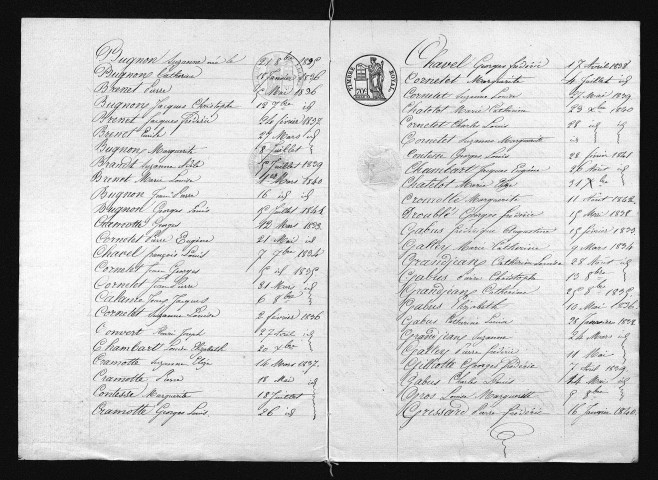 Bugnon Suzanne née le 21 8bre 1835
Bugnon Catherine 18 Janvier 1836
Brenet Pierre 5 Mai 1836
Bugnon Jacques Christophe 18 7bre id
Brenet Jacques frédéric 24 fevrier 1837
Brenet Emile 27 Mars id
Bugnon Marguerite 8 Juillet id
Brandt Suzanne 5 Juillet 1839
Brenet Marie Louise Mars 1840
Bugnon Jean Pierre 16 id id
Bugnon Georges Louis 5 Juillet 1842
Cramotte Georges 12 Mars 1833
Cornetet Pierre Eugène 21 Mai id
Chavel françois Louis 7 7bre 1834
Cornetet Jean Georges 5 id 1835
Cornetet Jean Pierre 31 Mars id
Calame Jean Jacques 6 8bre
Cornetet Suzanne Louise 2 fevrier 1836
Convert Henri Joseph 27 Avril id
Chambart Louise Elizabeth 20 Xbre
Cramotte Suzanne Elize 14 Mars 1837
Cramotte Pierre 18 Mai id
Contesse Marguerite 18 Juillet
Cramotte Georges Louis 26 id
TIMBRE ROYAL
Chavel Georges frédéric 17 Avril 1838
Cornetet Marguerite 4 Juillet id
Cornetet Suzanne Louise 27 Mai 1839
Chatelot Marie Catherine 23 Xbre 1840
Cornetet Charles Louis 28 id id
Cornetet Suzanne Marguerite id
Contesse Georges Louis 28 fevrier 1841
Chambart Jacques Eugène 26 Avril id
Chatelot Marie Elize 31 Xbre
Cramotte Marguerite 11 Août 1842
Droublé Georges frédéric 15 Mai 1832
Gabus frédérique Augustine 15 février 1833
Gallez Marie Catherine 9 Mars 1834
Grandjean Catherine Louise 28 Août id
Gabus Pierre Christophe 13 8bre
Grandjean Catherine 25 8bre 1835
Gabus Elizabeth 10 Mai 1836
Gabus Catherine Louise 28 Janvier 1838
Grandjean Suzanne 24 Mars id
Gallez Pierre frédéric 11 Mai
Gillotte Georges frédéric 7 Avril 1839
Gabus Charles Louis 14 Mai id
Gros Louise Marguerite 5 8bre
Grissard Pierre frédéric 16 fevrier 1840